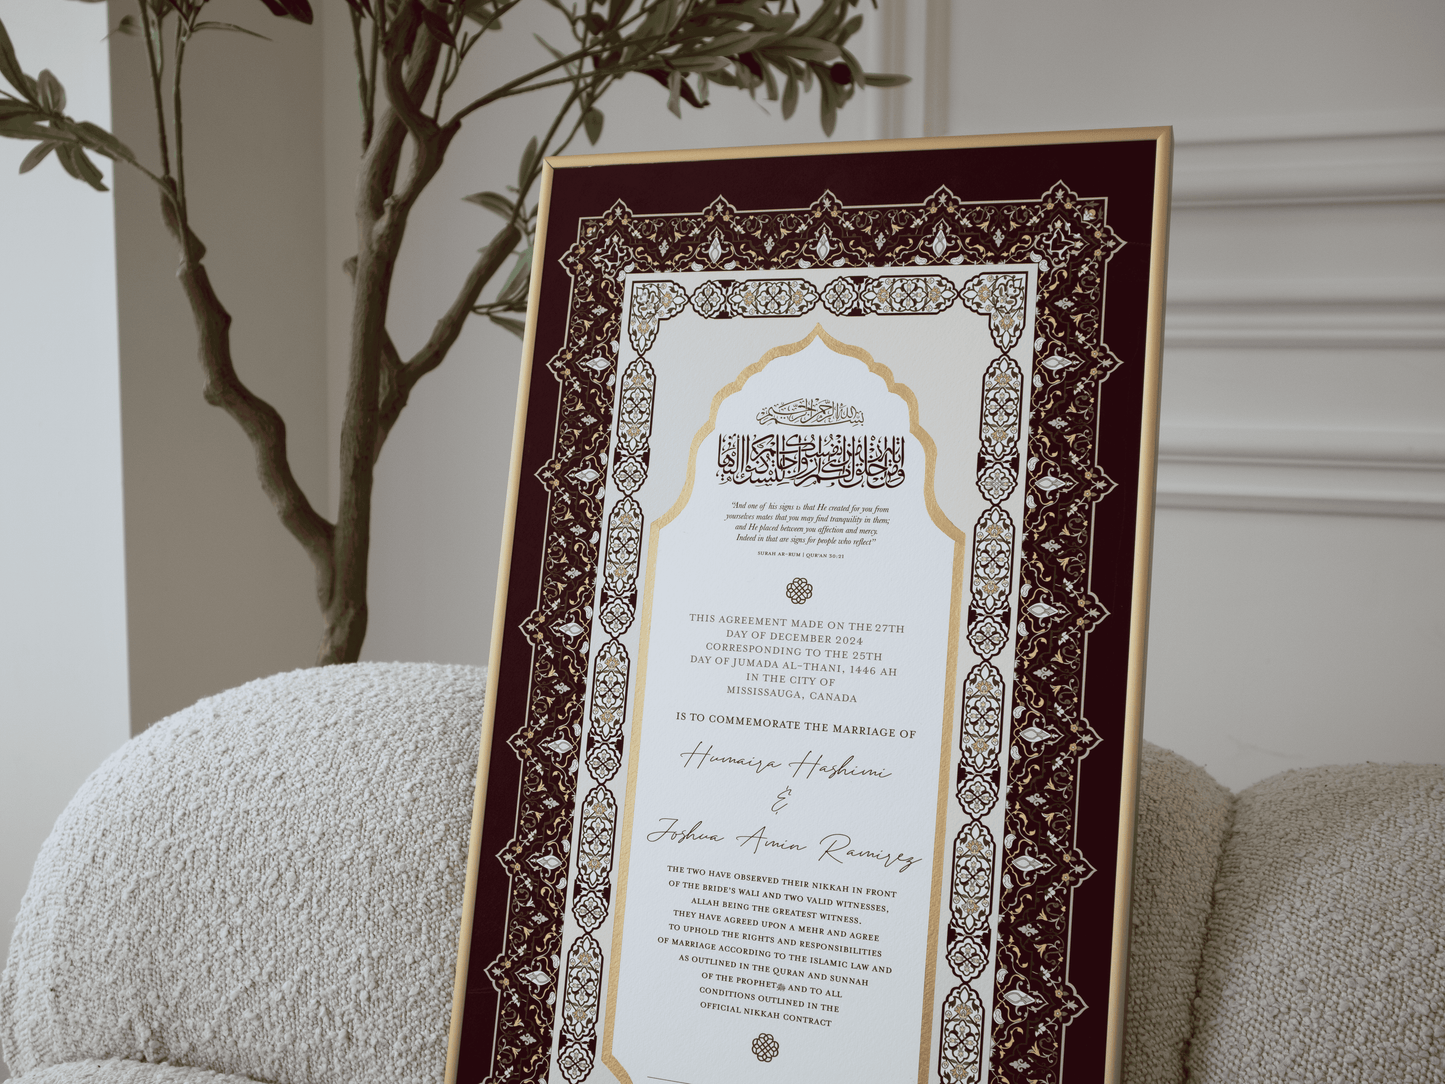 بسم الله الرحمن الرحيم
ومن آياته أن خلق لكم من أنفسكم أزواجا لتسكنوا إليها
"And one of his signs is that He created for you from
yourselves mates that you may find tranquility in them;
and He placed between you affection and mercy.
Indeed in that are signs for people who reflect"
SURAH AR-RUM | QUR'AN 30:21
THIS AGREEMENT MADE ON THE 27TH
DAY OF DECEMBER 2024
CORRESPONDING TO THE 25TH
DAY OF JUMADA AL-THANI, 1446 AH
IN THE CITY OF
MISSISSAUGA, CANADA
IS TO COMMEMORATE THE MARRIAGE OF
Humaira Hashimi
&
Joshua Amin Ramirez
THE TWO HAVE OBSERVED THEIR NIKKAH IN FRONT
OF THE BRIDE'S WALI AND TWO VALID WITNESSES,
ALLAH BEING THE GREATEST WITNESS.
THEY HAVE AGREED UPON A MEHR AND AGREE
TO UPHOLD THE RIGHTS AND RESPONSIBILITIES
OF MARRIAGE ACCORDING TO THE ISLAMIC LAW AND
AS OUTLINED IN THE QURAN AND SUNNAH
OF THE PROPHETﷺ AND TO ALL
CONDITIONS OUTLINED IN THE
OFFICIAL NIKKAH CONTRACT